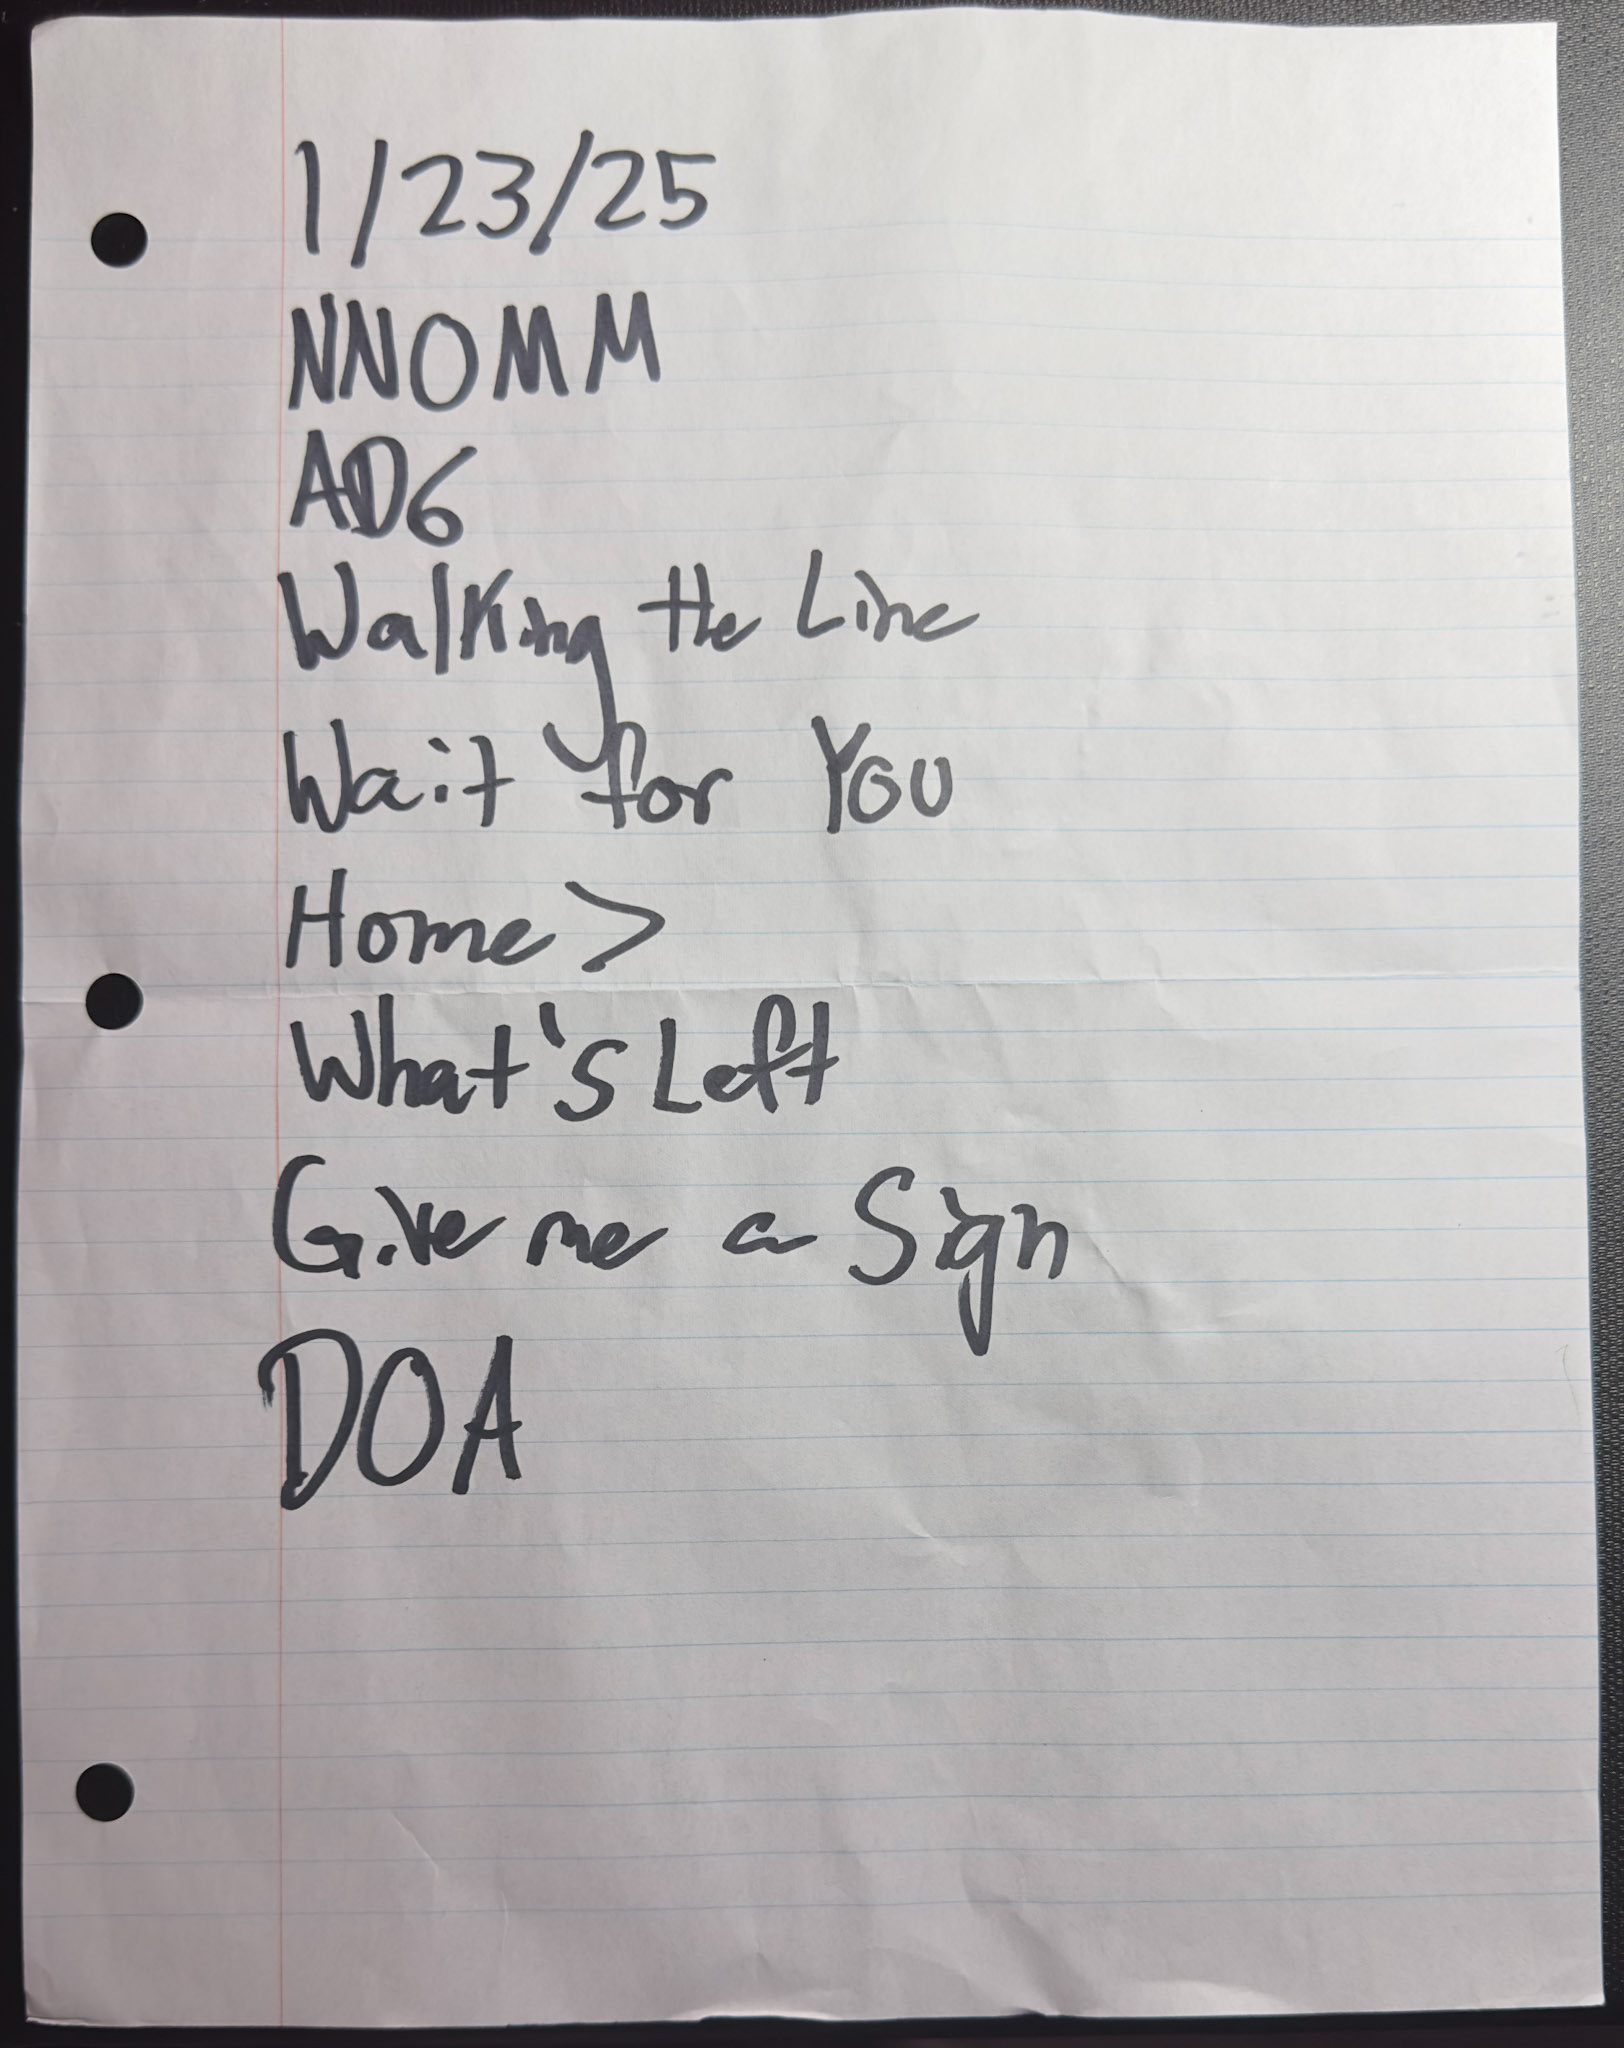 1/23/25
NNOMM
AD6
Walking the Line
Wait for You
Home >
What's Left
Give me a Sign
DOA